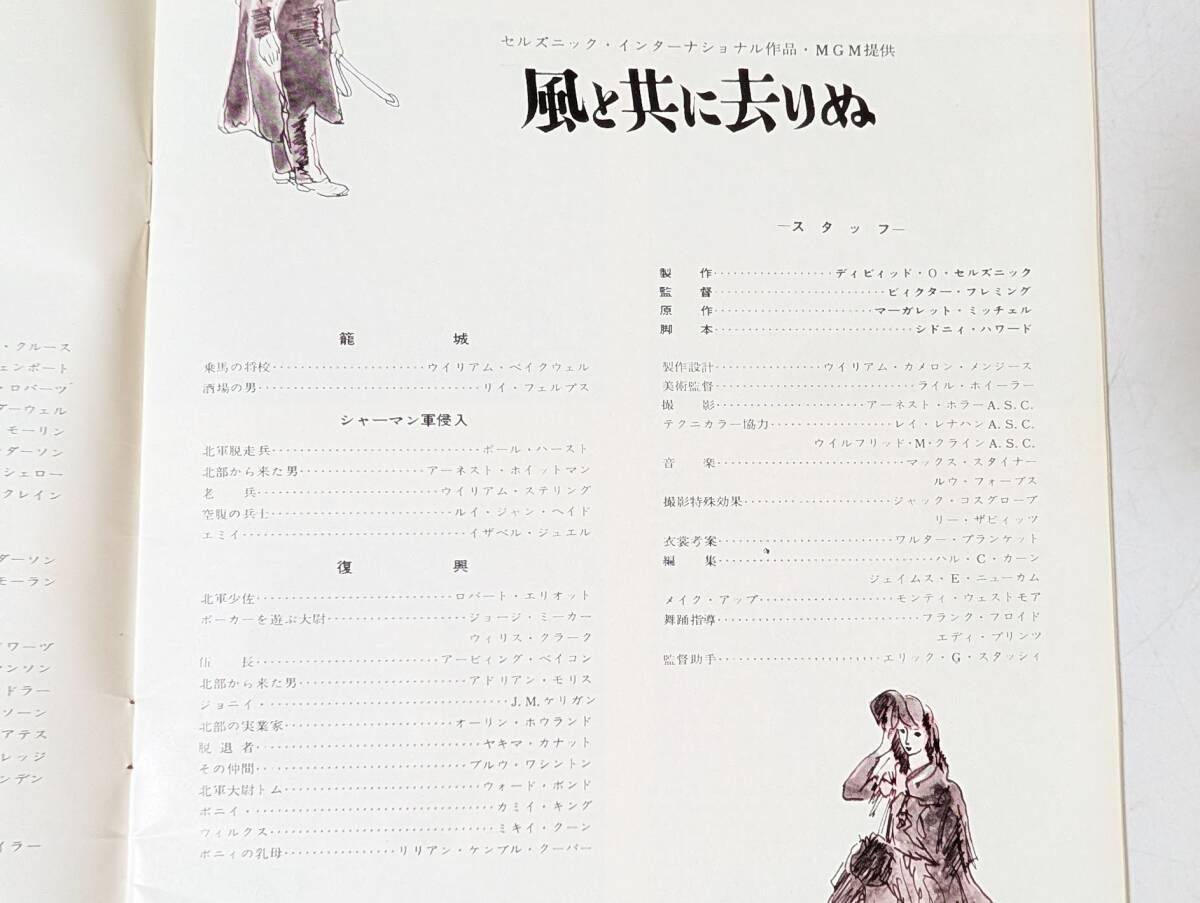 ・クルース
ェンポート
・ロバーツ
ダーウェル
モーリン
ンダーソン
シェロー
クレイン
ダーソン
モーラン
ドワーヴ
ンソン
ドラー
ソーン
アテス
レッジ
ンデン
イラー
セルズニック・インターナショナル作品・MGM提供
風と共に去りぬ
籠城
乗馬の将校……………………ウイリアム・ベイクウェル
酒場の男……………………リイ・フェルプス
シャーマン軍侵入
北軍脱走兵……………………ポール・ハースト
北部から来た男……………………アーネスト・ホイットマン
老兵……………………ウイリアム・ステリング
空腹の兵士……………………ルイ・ジャン・ヘイド
エミイ……………………イザベル・ジュエル
復興
北軍少佐……………………ロバート・エリオット
ポーカーを遊ぶ大尉……………………ジョージ・ミーカー
ウィリス・クラーク
伍長……………………アービィング・ベイコン
北部から来た男……………………アドリアン・モリス
ジョニイ……………………J.M.ケリガン
北部の実業家……………………オーリン・ホウランド
脱退者……………………ヤキマ・カナット
その仲間……………………ブルウ・ワシントン
北軍大尉トム……………………ウォード・ボンド
ボニイ……………………カミイ・キング
ウィルクス……………………ミキイ・クーン
ボニィの乳母……………………リリアン・ケンブル・クーパー
―スタッフ―
製作……………………ディビィッド・O・セルズニック
監督……………………ビィクター・フレミング
原作……………………マーガレット・ミッチェル
脚本……………………シドニィ・ハワード
製作設計……………………ウイリアム・カメロン・メンジース
美術監督……………………ライル・ホイーラー
撮影……………………アーネスト・ホラーA.S.C.
テクニカラー協力……………………レイ・レナハンA.S.C.
ウイルフリッド・M・クラインA.S.C.
音楽……………………マックス・スタイナー
ルウ・フォーブス
撮影特殊効果……………………ジャック・コスグローブ
リー・ザビィッツ
衣裳考案……………………ワルター・プランケット
編集……………………ハル・C・カーン
ジェイムス・E・ニューカム
メイク・アップ……………………モンティ・ウェストモア
舞踊指導……………………フランク・フロイド
エディ・プリンツ
監督助手……………………エリック・G・スタッシィ